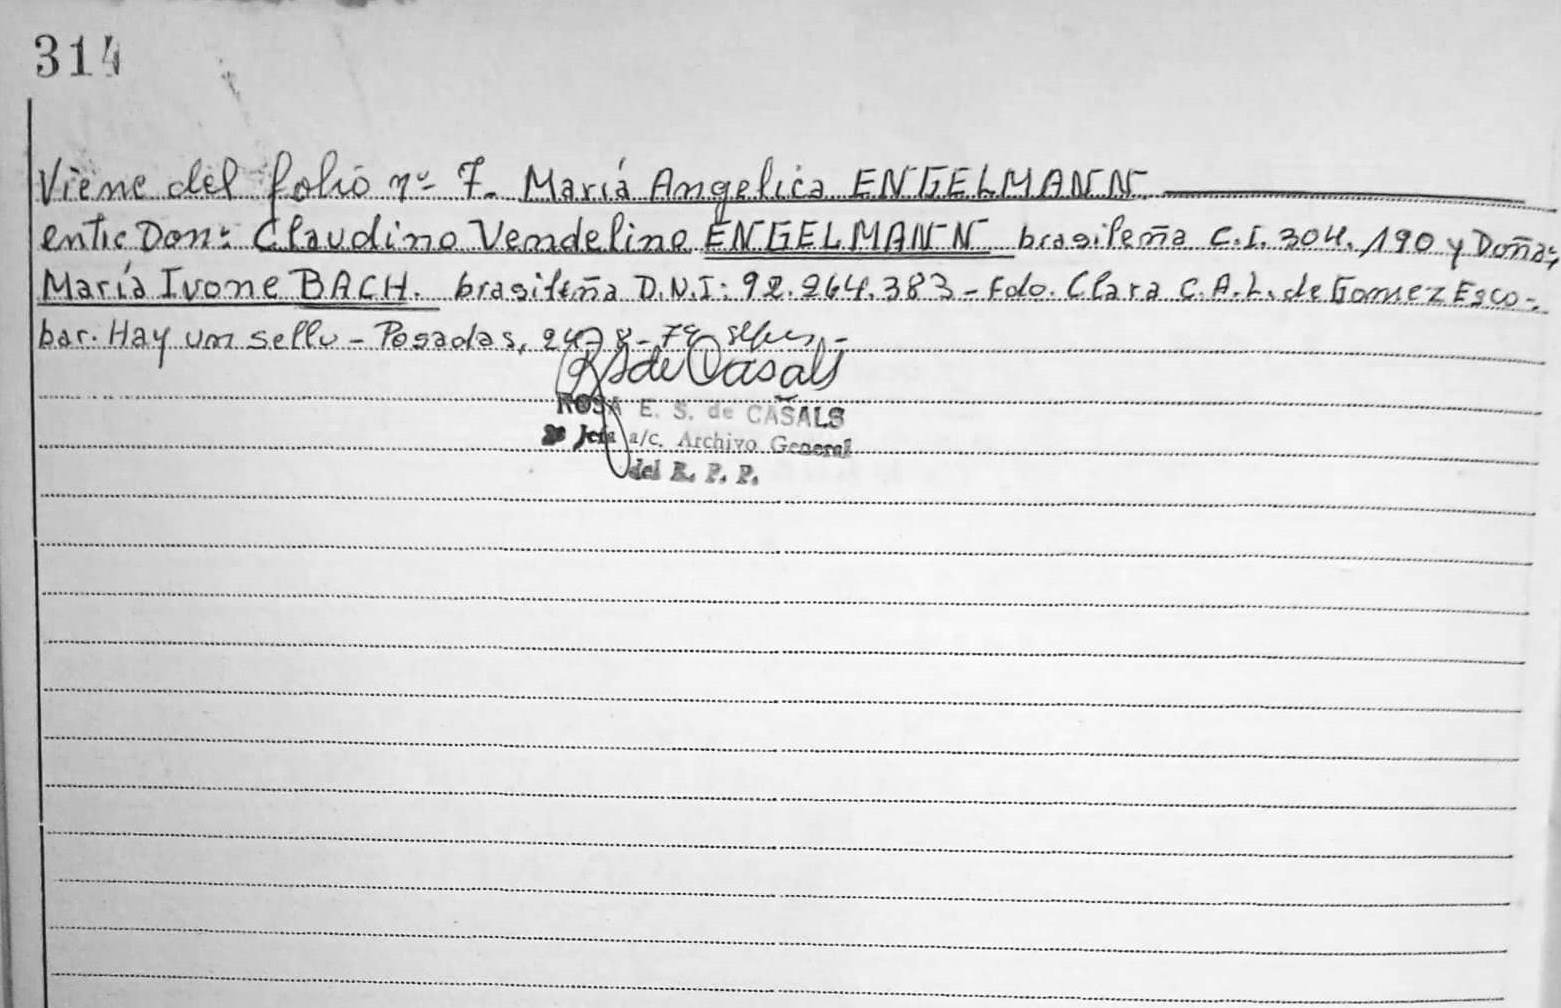 314
Viene del folio nº 7. María Angelica ENGELMANN
entre Don: Claudino Vendelino ENGELMANN brasileña C.I. 304.190 y Doña:
María Ivone BACH. brasileña D.N.I: 92.264.383 - Fdo. Clara C.A.L. de Gomez Esco-
bar. Hay un sello - Posadas,
de Casals
ROSA E. S. de CASALS
Jefa a/c. Archivo General
del R. P. P.